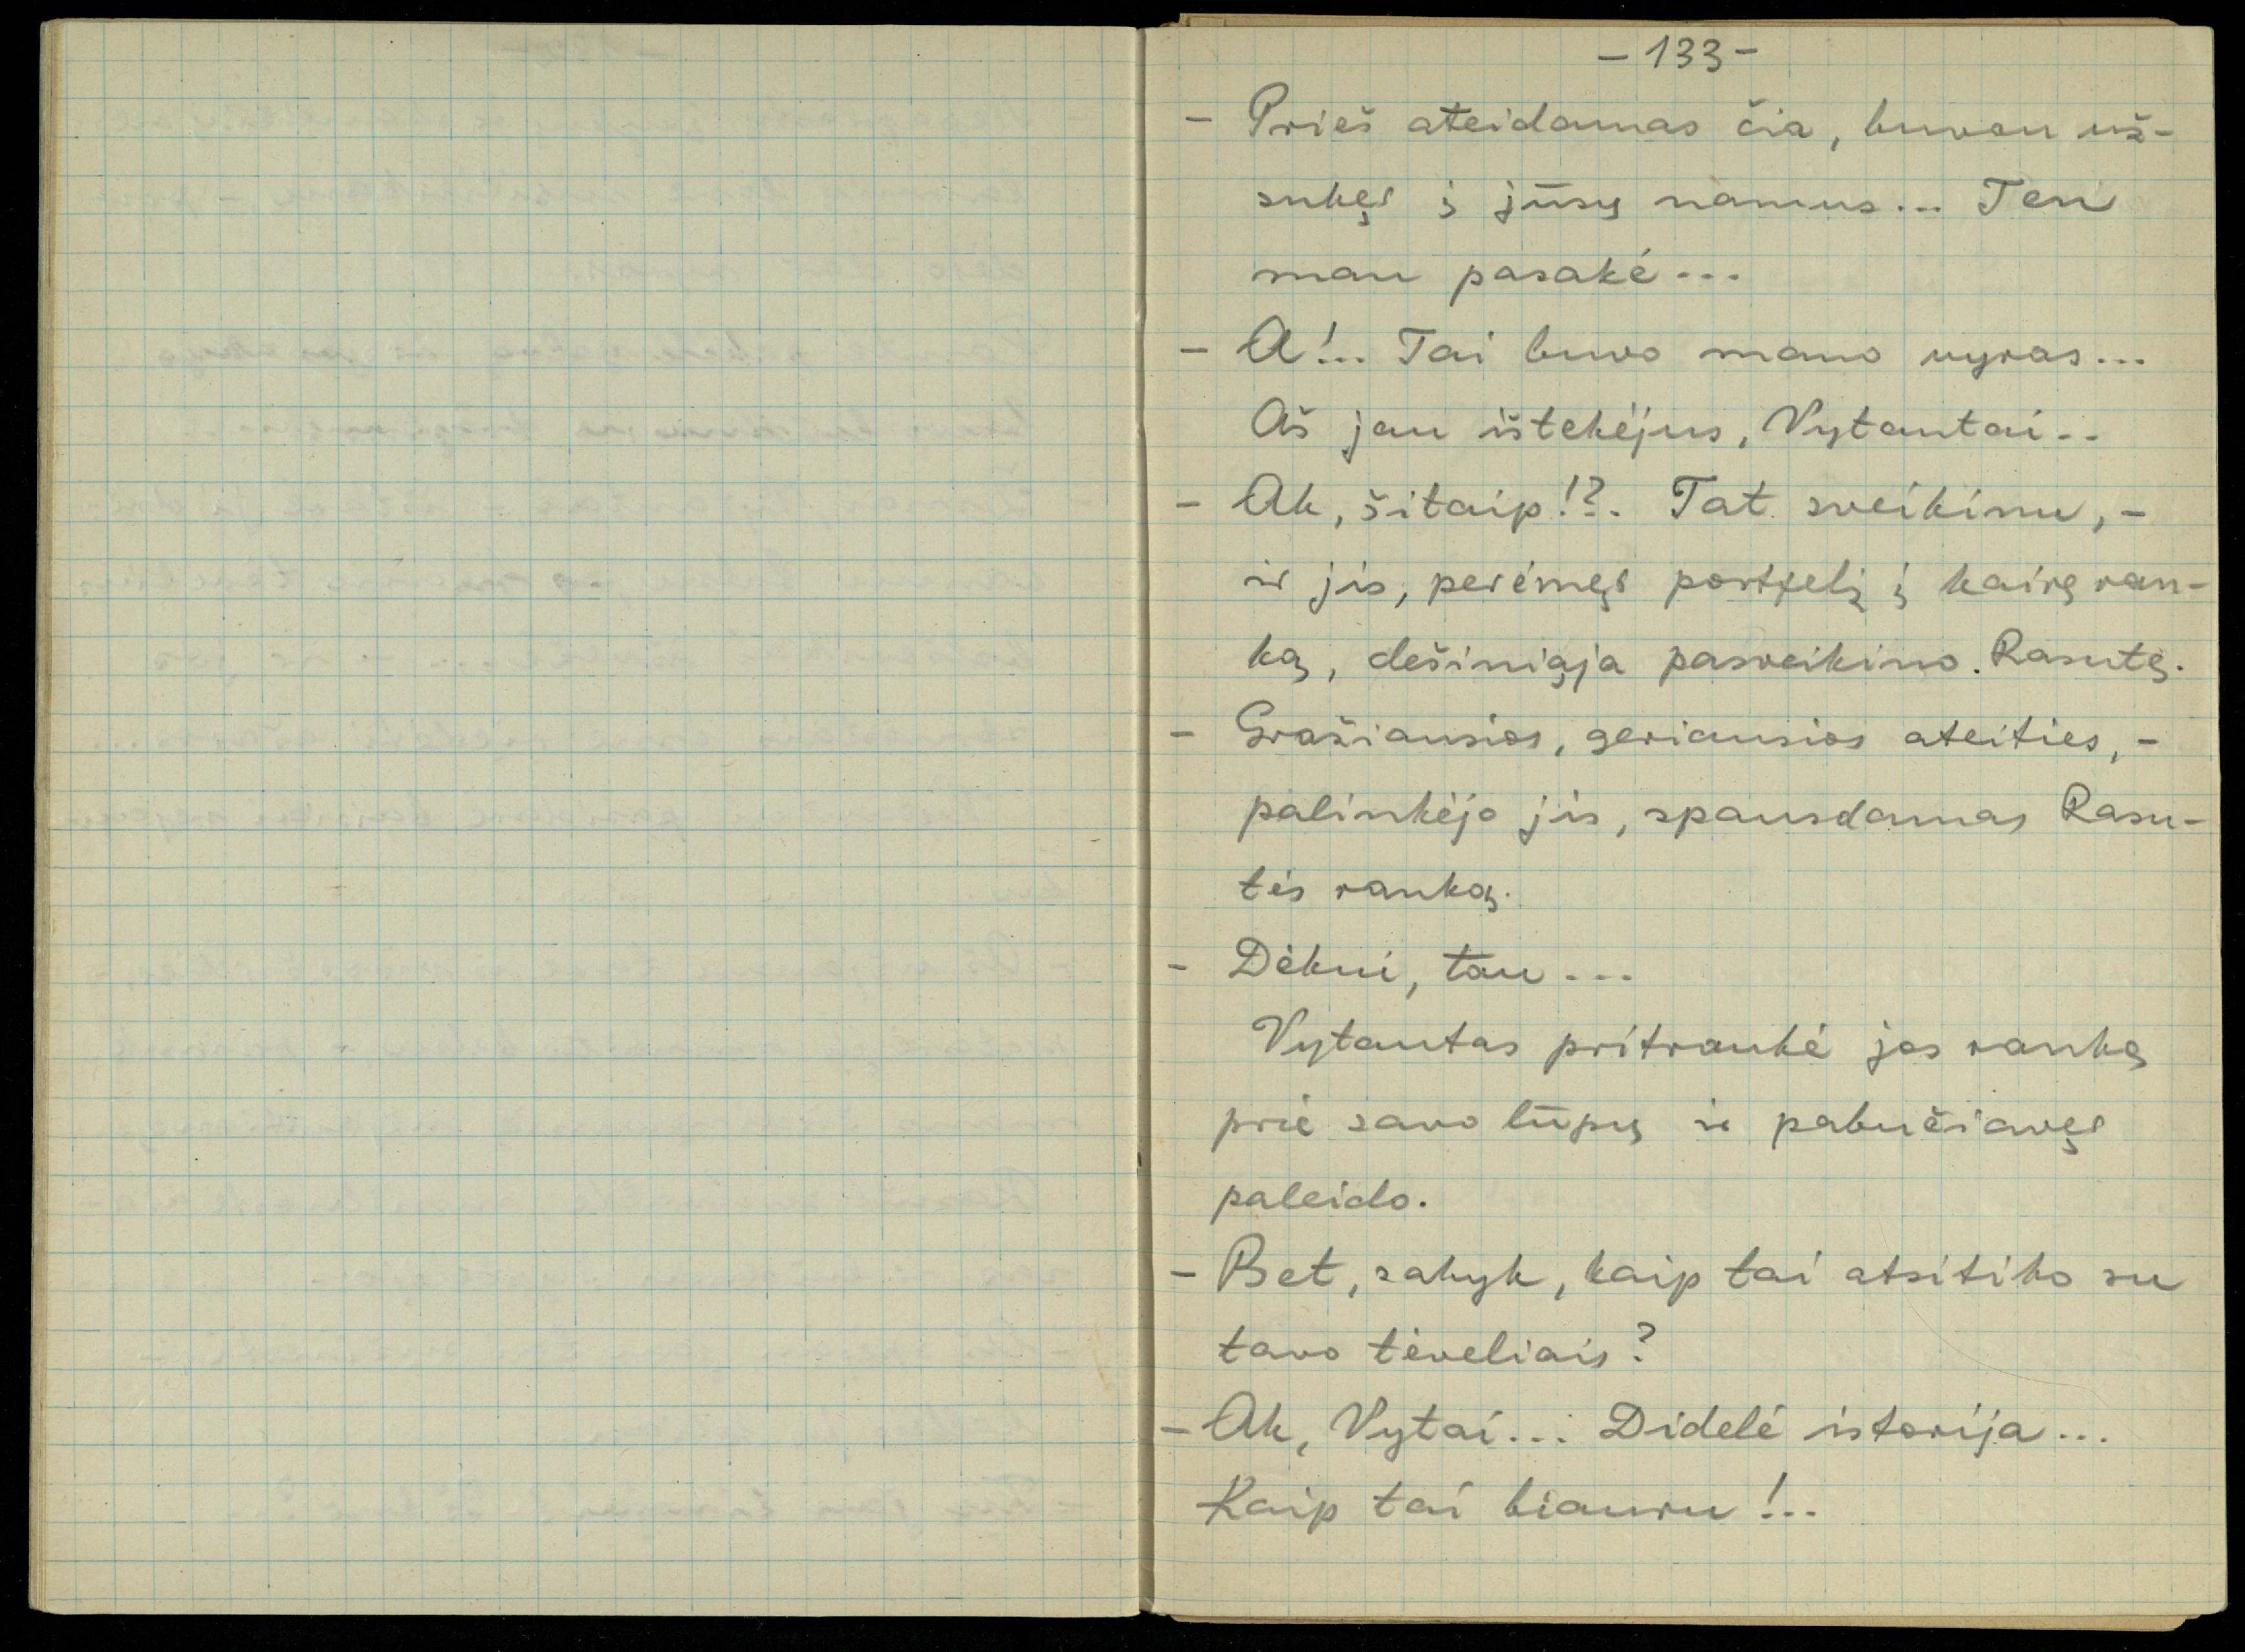 - 133 -
- Prieš ateidamas čia, buvau už-
sukęs į jūsų namus... Ten
man pasakė...
- A!.. Tai buvo mano vyras...
Aš jau ištekėjus, Vytautai..
- Ak, šitaip!?. Tat sveikinu, -
ir jis, perėmęs portfelį į kairę ran-
ką, dešiniąja pasveikino Rasutę.
- Gražiausios, geriausios ateities, -
palinkėjo jis, spausdamas Rasu-
tės ranką.
- Dėkui, tau...
Vytautas pritraukė jos ranką
prie savo lūpų ir pabučiavęs
paleido.
- Bet, sakyk, kaip tai atsitiko su
tavo tėveliais?
- Ak, Vytai... Didelė istorija...
Kaip tai biauru!..